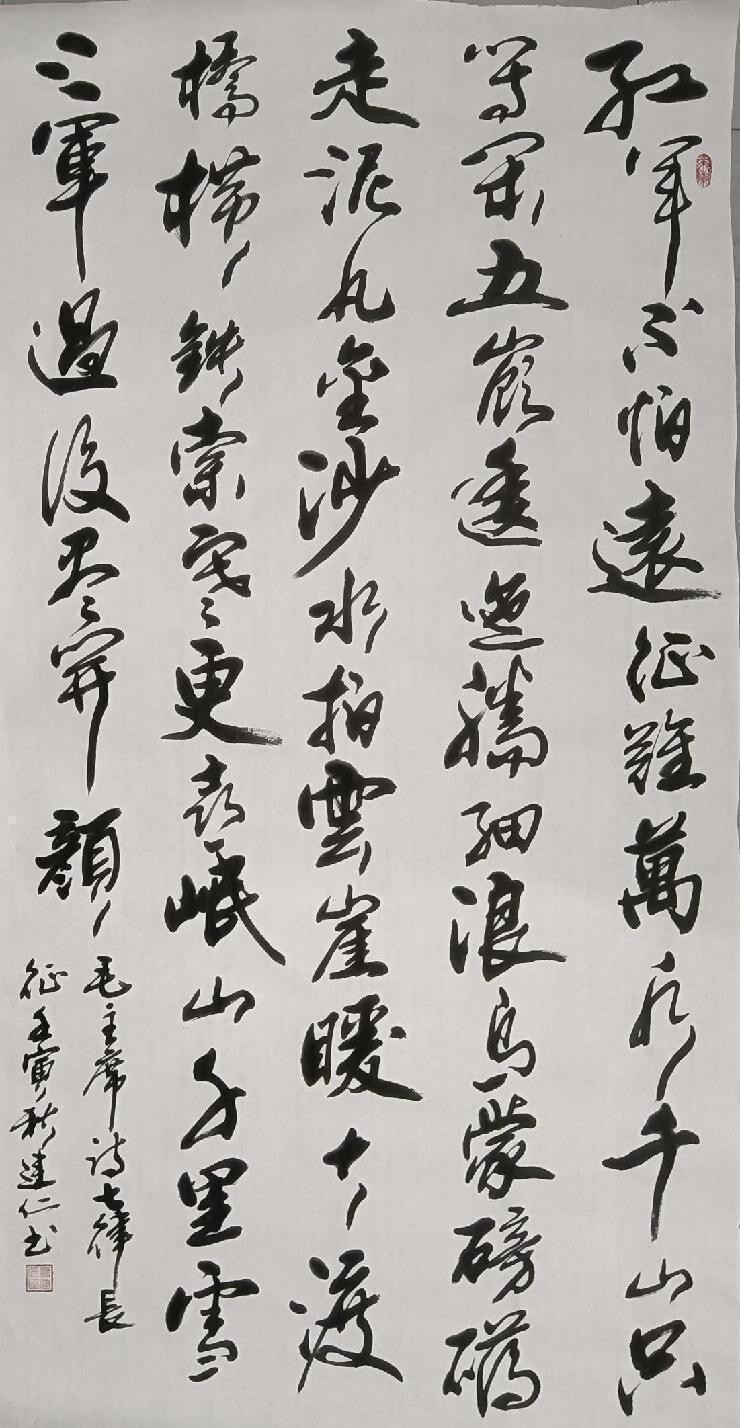 红军不怕遠征難萬水千山只
等闲五嶺逶迤腾细浪乌蒙磅礴
走泥丸金沙水拍雲崖暖大渡
橋横铁索寒更喜岷山千里雪
三軍過後尽開顔
毛主席诗七律長
征壬寅秋建仁书